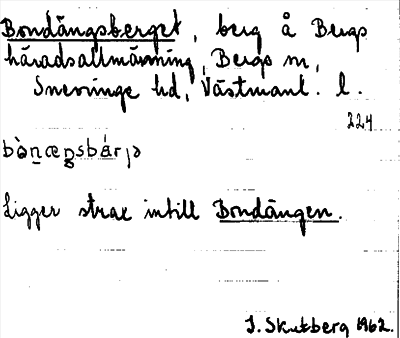 Bondängsberget, berg å Bergs
häradsallmänning, Bergs sn,
Snevringe hd, Västmanl. l.
224
bòn̠æŋsbárjə
Ligger strax intill Bondängen.
J. Skutberg 1962.